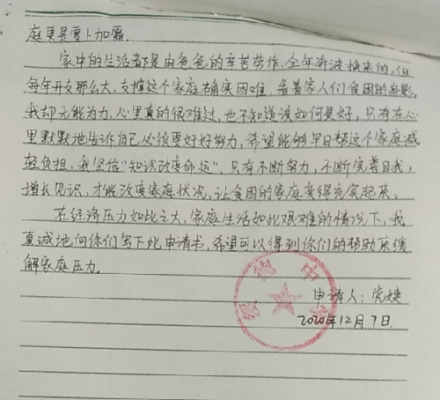 庭更是雪上加霜。
家中的生活都是由爸爸的辛苦劳作,全年奔波换来的,但
每年开支那么大,支撑这个家庭确实困难,看着家人们贫困的身影,
我却无能为力,心里真的很难过,也不知道该如何是好,只有在心
里默默地告诉自己必须要好好努力,希望能够早日帮这个家庭减
轻负担,我坚信“知识改变命运”,只有不断努力,不断完善自我,
增长见识,才能改变家庭状况,让贫困的家庭变得富实起来。
在经济压力如此之大,家庭生活如此艰难的情况下,我
真诚地向你们写下此申请书,希望可以得到你们的帮助来缓
解家庭压力。
申请人:党婕
2020年12月7日
中学